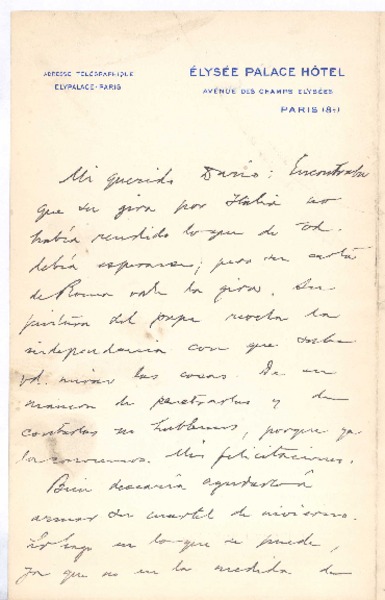 ADRESSE TÉLÉGRAPHIQUE
ELYPALACE-PARIS
ÉLYSÉE PALACE HÔTEL
AVENUE DES CHAMPS ELYSÉES
PARIS
Mi querido Dario: Encontraba
que su gira por Italia no
había rendido lo que de Vd.
debía esperarse; pero su carta
de Roma vale la gira. Su
pintura del papa revela la
independencia con que sabe
vd. mirar las cosas. De su
manera de penetrarlas y de
contarlas no hablemos, porque ya
las conocemos. Mis felicitaciones.
Bien desearía ayudarlo á
armar su cuartel de invierno.
Lo hago en lo que se puede,
ya que no en la medida de